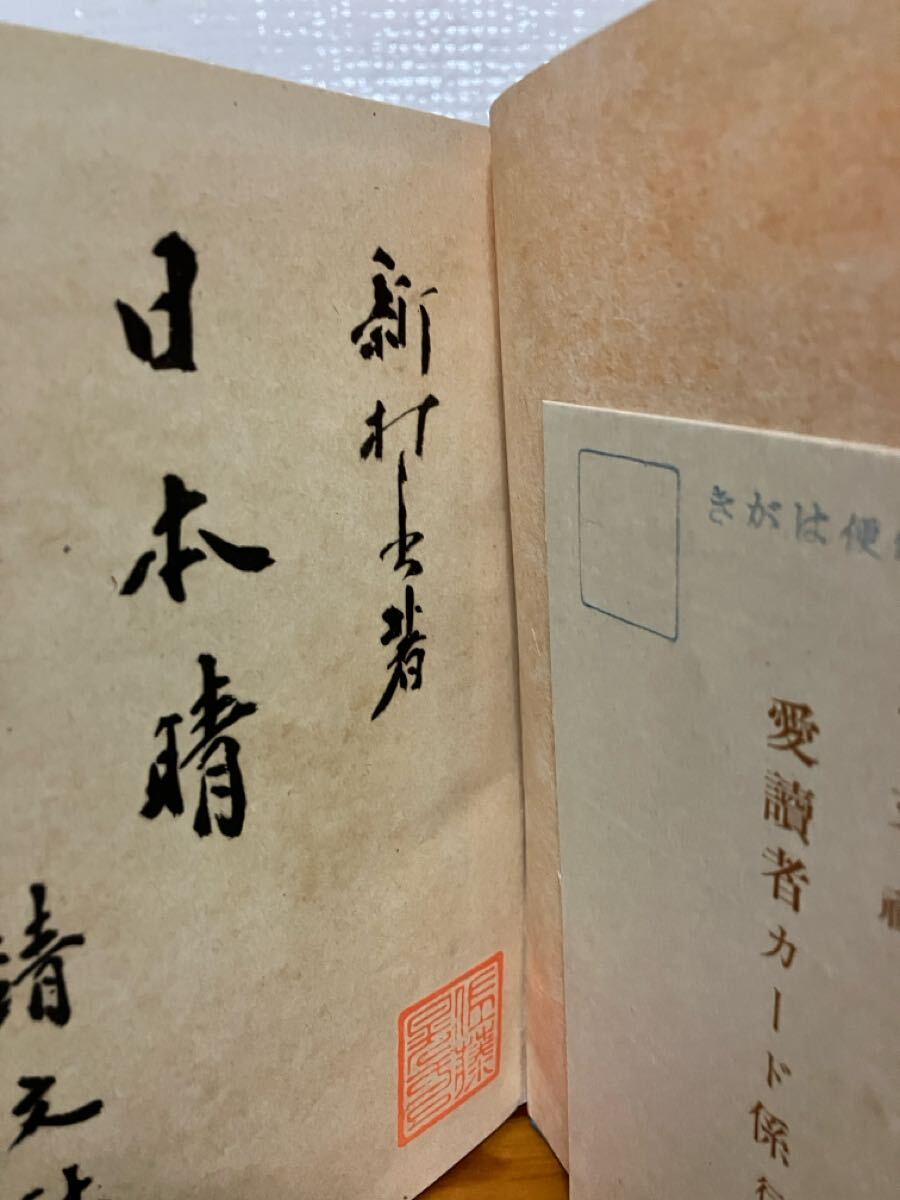 便はがき
愛讀者カード係
新村出著
日本晴
靖文